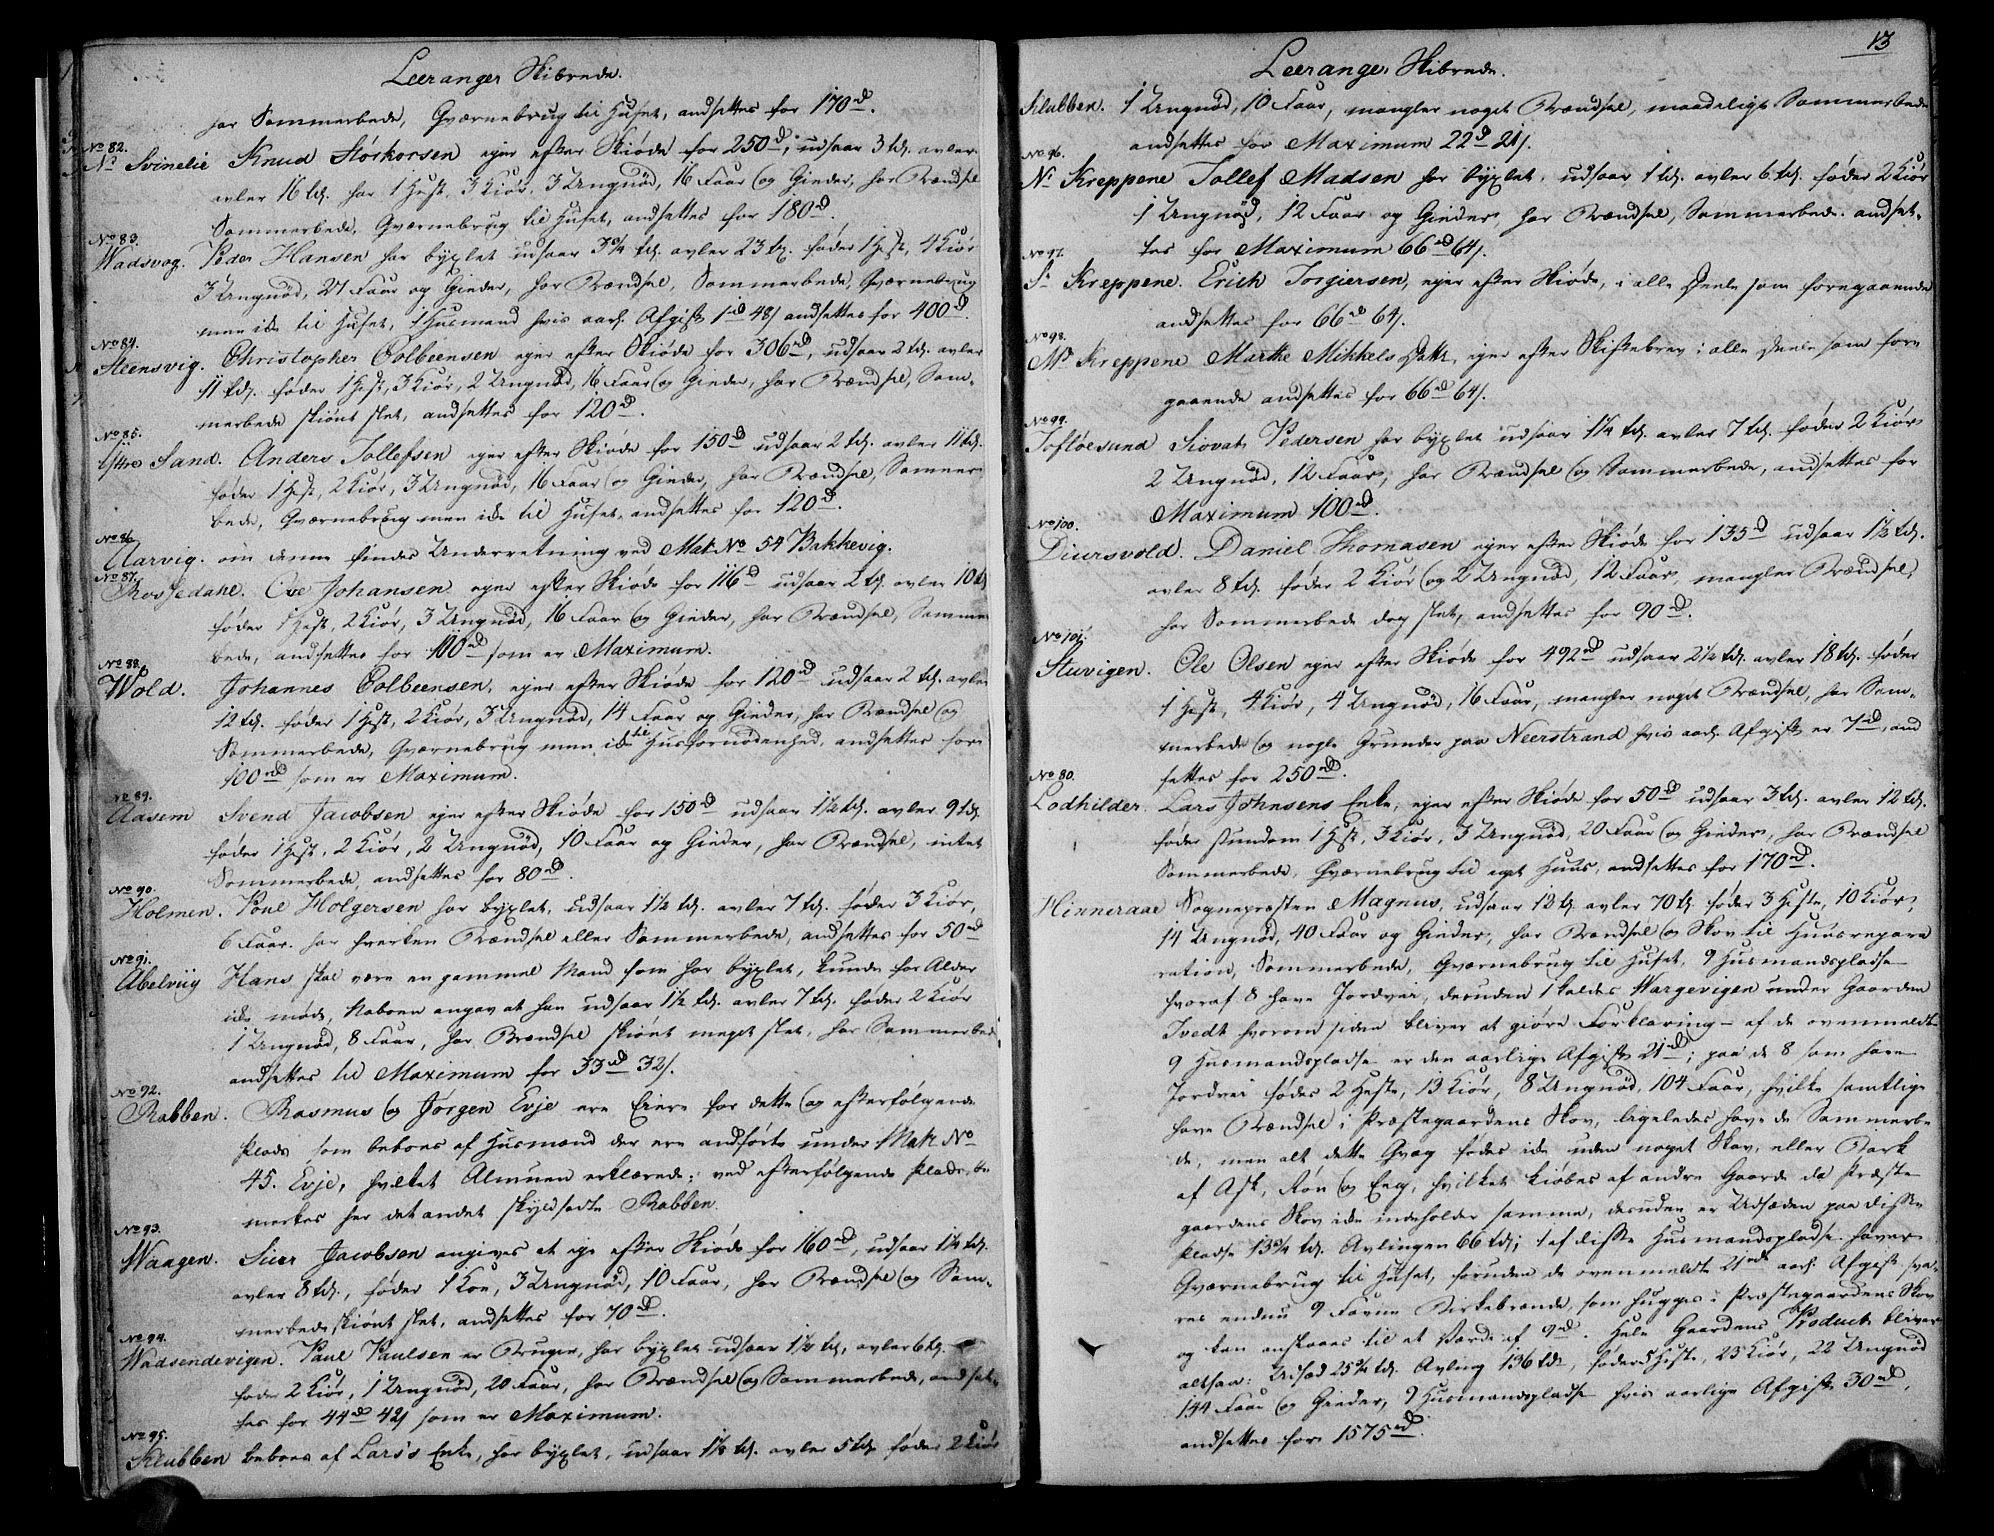 Leeranger Skibrede.
har Sommerbede, Qværnebrug til Huset, andsættes for 170rd.
No 82.
Nr Svinelie Knud Størkorsen ejer efter Skiøde for 250rd, udsaar 3 td. avler
avler 16 td. har 1 Hest, 3 Kiør, 3 Ungnød, 16 Faar og Gieder, har Brændsel
Sommerbede, Qværnebrug til Huset, andsættes for 180rd.
No 83.
Wadsvog. Peder Hansen har byxlet udsaar 3 3/4 td. avler 23 td. føder 1 Hest, 4 Kiør
3 Ungnød, 21 Faar og Gieder, har Brændsel, Sommerbede, Qværnebrug
men ike til Huset, 1 Husmand hvis aarl. Afgift 1rd 48s andsættes for 400rd.
No 84.
Steensvig. Christopher Colbeensen ejer efter Skiøde for 306rd, udsaar 2 td. avler
11 td. føder 1 Hest, 3 Kiør, 2 Ungnød, 16 Faar og Gieder, har Brændsel, Som-
merbede skiønt slet, andsættes for 120rd.
No 85.
Yttre Sand. Anders Tollefsen ejer efter Skiøde for 150rd udsaar 2 td. avler 11 td.
føder 1 Hest, 2 Kiør, 3 Ungnød, 16 Faar og Gieder, har Brændsel, Sommer
bede, Qværnebrug men ike til Huset, andsættes for 120rd.
No 86.
Aarvig. om denne findes Underretning ved Mat. No 54 Bakkevig.
No 87.
Rossedahl. Ove Johansen ejer efter Skiøde for 116rd udsaar 2 td. avler 10 td
føder 1 Hest, 2 Kiør, 3 Ungnød, 16 Faar og Gieder, har Brændsel, Sommer
bede, andsættes for 100rd som er Maximum.
No 88.
Wold. Johannes Colbeensen, ejer efter Skiøde for 120rd udsaar 2 td. avler
12 td. føder 1 Hest, 2 Kiør, 3 Ungnød, 14 Faar og Gieder, har Brændsel og
Sommerbede, Qværnebrug men ike til Husfornødenhed, andsættes for
100rd som er Maximum.
No 89.
Aasem Svend Jacobsen ejer efter Skiøde for 150rd udsaar 1 1/2 td. avler 9 td.
føder 1 Hest, 2 Kiør, 2 Ungnød, 10 Faar og Gieder, har Brændsel, intet
Sommerbede, andsættes for 80rd.
No 90.
Holmen. Poul Holgersen har byxlet, udsaar 1 1/2 td. avler 7 td. føder 3 Kiør,
6 Faar. har hverken Brændsel eller Sommerbede, andsættes for 50rd
No 91.
Abelviig Hans skal være en gammel Mand som har byxlet, kunde for Alder
ike møde, Naboen angav at han udsaar 1 1/2 td. avler 7 td. føder 2 Kiør
1 Ungnød, 8 Faar, har Brændsel skiønt meget slet, har Sommerbede
andsættes til Maximum for 33rd 32s.
No 92.
Rabben. Rasmus og Jørgen Evje ere Eiere for dette og efterfølgende
Plads som beboes af Husmænd der ere andførte under Matr No
45. Evje, hvilket Almuen erklærede; ved efterfølgende Plads, be
merkes her det andet skyldsadte Rabben.
No 93.
Waagen. Siver Jacobsen angives at eje efter Skiøde for 160rd, udsaar 1 1/4 td.
avler 8 td., føder 1 Koe, 3 Ungnød, 10 Faar, har Brændsel og Som-
merbede skiønt slet, andsættes for 70rd.
No 94.
Wadsendevigen. Paul Paulsen er Bruger, har byxlet udsaar 1 1/2 td, avler 6 td.
føder 2 Kiør, 1 Ungnød, 20 Faar, har Brændsel og Sommerbede, andsæt-
tes for 44rd 42s som er Maximum.
No 95.
Klubben beboes af Lars's Enke, har byxlet, udsaar 1 1/8 td. avler 5 td. føder 2 Kiør
13
Leeranger Skibrede.
Klubben. 1 Ungnød, 10 Faar, mangler noget Brændsel, maadelige Sommerbede
andsættes for Maximum 22rd 21s.
No 96.
Nr Kreppene Tollef Madsen har byxlet, udsaar 1 td. avler 6 td. føder 2 Kiør
1 Ungnød, 12 Faar og Gieder, har Brændsel, Sommerbede. andsæt-
tes for Maximum 66rd 64s.
No 97.
Sr Kreppene. Erich Torgiersen, ejer efter Skiøde, i alle Deele som foregaaende
andsættes for 66rd 64s.
No 98.
Md Kreppene Marthe Mikkels Datt. ejer efter Skiftebrev i alle Deele som fore
gaaende andsættes for 66rd 64s.
No 99.
Tofløesund Siovat Pedersen har byxlet udsaar 1 1/4 td. avler 7 td. føder 2 Kiør
2 Ungnød, 12 Faar, har Brændsel og Sommerbede, andsættes for
Maximum 100rd.
No 100.
Diursvold. Daniel Thomasen ejer efter Skiøde for 135rd udsaar 1 1/2 td.
avler 8 td. føder 2 Kiør og 2 Ungnød, 12 Faar, mangler Brændsel,
har Sommerbede dog slet, andsættes for 90rd.
No 101.
Stuvigen. Ole Olsen ejer efter Skiøde for 492rd udsaar 2 1/2 td. avler 18 td. føder
1 Hest, 4 Kiør, 4 Ungnød, 16 Faar, mangler noget Brændsel, har Som-
merbede og nogle Grunder paa Neerstrand hvis aarl. Afgift er 7rd, and
sættes for 250rd.
No 80.
Lodhilder. Lars Johnsens Enke, ejer efter Skiøde for 50rd udsaar 3 td. avler 12 td.
føder stundom 1 Hest, 3 Kiør, 3 Ungnød, 20 Faar og Gieder, har Brændsel
Sommerbede, Qværnebrug til eget Huus, andsættes for 170rd.
Hinneraae Sognepræsten Magnus, udsaar 12 td avler 70 td. føder 3 Heste, 10 Kiør,
14 Ungnød, 40 Faar og Gieder, har Brændsel og Skov til Huusrepara
ration, Sommerbede, Qværnebrug til Huset, 9 Husmandspladse
hvoraf 8 have Jordvei, desuden 1 kaldes Wargevigen under Gaarden
Tvedt hvorom siden bliver at giøre Forklaring - af de ovenmeldte
9 Husmandspladse er den aarlige Afgift 21rd; paa de 8 som have
Jordvei fødes 2 Heste, 13 Kiør, 8 Ungnød, 104 Faar, hvilke samtlige
have Brændsel i Præstegaardens Skov, ligeledes have de Sommerbe
de, men alt dette Qvæg fødes ike uden noget Skav, eller Bark
af Ask, Røn og Eeg, hvilket kiøbes af andre Gaarde da Præste
gaardens Skov ike indeholder samme, desuden er Udsæden paa disse
Pladse 13 3/4 td. Avlingen 66 td; 1 af disse Husmandspladse haver
Qværnebrug til Huset, foruden de ovenmeldte 21rd aarl. Afgift sva-
res endnu 9 Favne Birkebrænde, som hugges i Præstegaardens Skov
og kan anslaaes til et Værdi af 9rd. Hele Gaardens Product bliver
altsaa: Udsæd 25 3/4 td. Avling 136 td, føder 5 Heste, 23 Kiør, 22 Ungnød
144 Faar og Gieder, 9 Husmandspladse hvis aarlige Afgift 30rd,
andsættes for 1575rd.